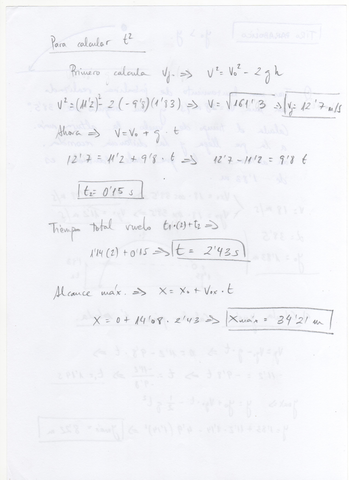 Para calcular t²
Primero calcula Vy ⇒ V² = V₀² - 2gh
V² = (11'2)² - 2(-9'8)(1'83) ⇒ V = √161'3 ⇒ Vy = 12'7 m/s
Ahora ⇒ V = V₀ + g · t
12'7 = 11'2 + 9'8 · t ⇒ 12'7 - 11'2 = 9'8 t
t₂ = 0'15 s
Tiempo total vuelo t₁·(2)+t₂ ⇒
1'14(2) + 0'15 ⇒ t = 2'43 s
Alcance máx. ⇒ X = X₀ + V₀ₓ · t
X = 0 + 14'08 · 2'43 ⇒ Xmáx = 34'21 m